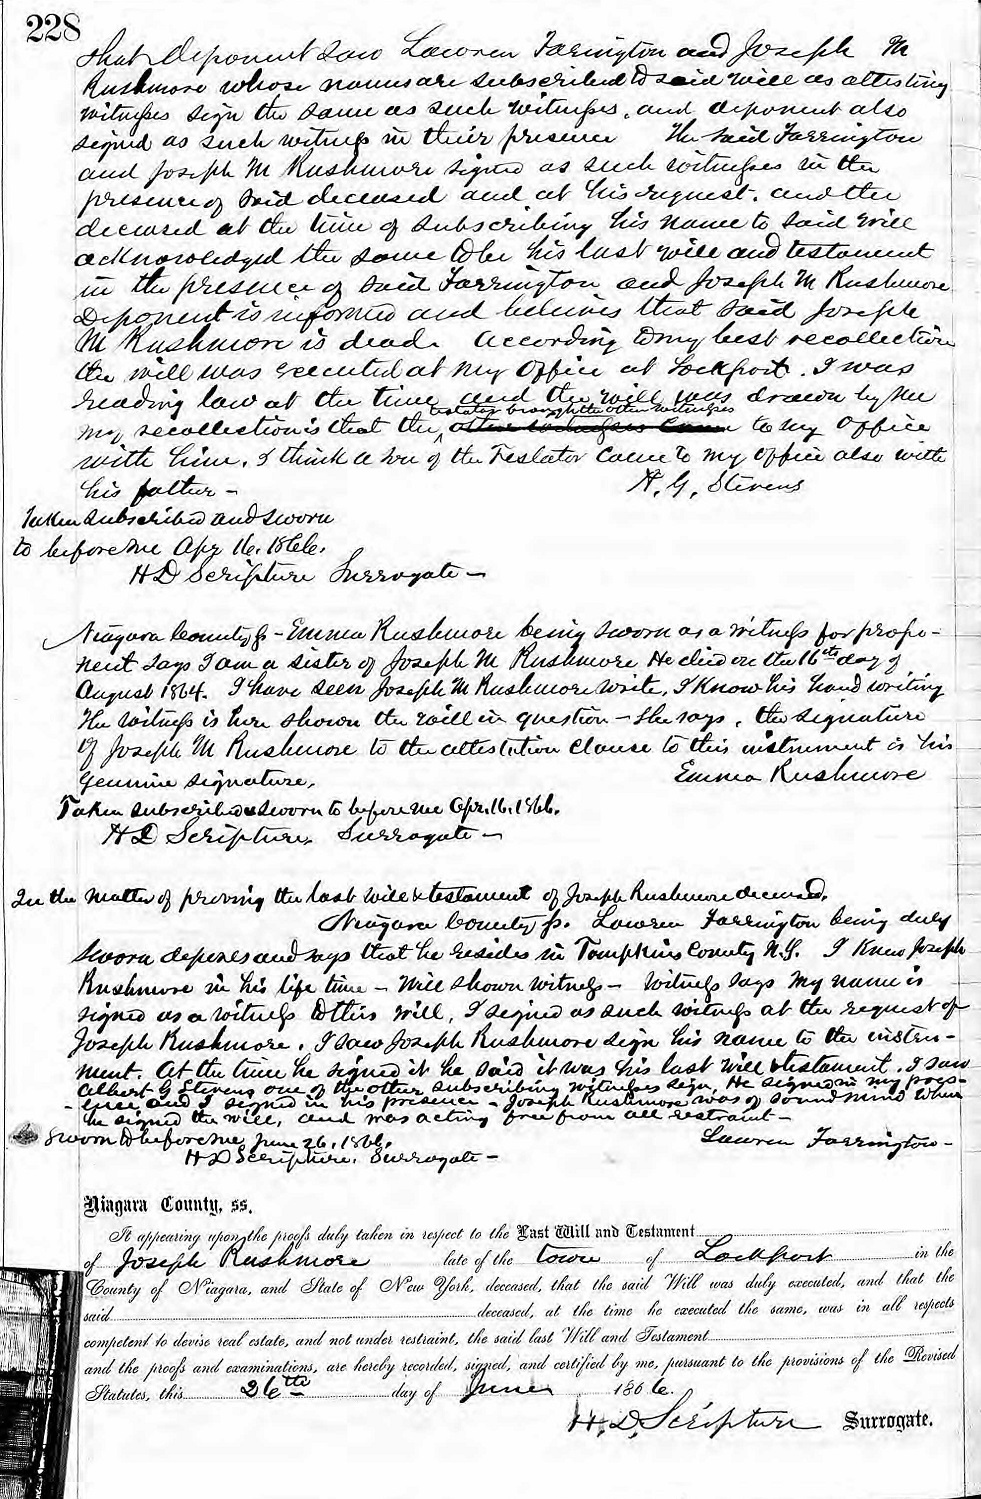 228
that deponent saw Lawren Farrington and Joseph M
Rushmore whose names are subscribed to said will as attesting
witnesses sign the same as such witnesses, and deponent also
signed as such witness in their presence The said Farrington
and Joseph M Rushmore signed as such witnesses in the
presence of said deceased and at his request. and the
deceased at the time of subscribing his name to said will
acknowledged the same to be his last will and testament
in the presence of said Farrington and Joseph M Rushmore
Deponent is informed and believes that said Joseph
M Rushmore is dead. According to my best recollection
the will was executed at my office at Lockport. I was
reading law at the time and the will was drawn by me
testator brought the other witnesses
my recollection is that the other witnesses came to my office
with him. I think a son of the Testator came to my office also with
his father -
A. G. Stevens
Taken subscribed and sworn
to before me Apr 16. 1866.
H D Scripture Surrogate -
Niagara County ss - Emma Rushmore being sworn as a witness for propo-
nent says I am a sister of Joseph M Rushmore He died on the 16th day of
August 1864. I have seen Joseph M Rushmore write. I know his hand writing
The witness is here shown the will in question - She says, the signature
of Joseph M Rushmore to the attestation clause to this instrument is his
genuine signature.
Emma Rushmore
Taken subscribed & sworn to before me Apr. 16. 1866.
H D Scripture, Surrogate -
In the matter of proving the last will & testament of Joseph Rushmore deceased.
Niagara County ss. Lawren Farrington being duly
sworn deposes and says that he resides in Tompkins County N.Y. I knew Joseph
Rushmore in his life time - Will shown witness - Witness says my name is
signed as a witness to this will, I signed as such witness at the request of
Joseph Rushmore. I saw Joseph Rushmore sign his name to the instru-
ment. At the time he signed it he said it was his last will & testament. I saw
Albert G Stevens one of the other subscribing witnesses sign, He signed in my pres-
-ence and I signed in his presence - Joseph Rushmore was of sound mind when
he signed the will, and was acting free from all restraint -
Sworn to before me June 26, 1866.
Lawren Farrington -
H D Scripture, Surrogate -
Niagara County, ss.
It appearing upon the proofs duly taken in respect to the Last Will and Testament
of Joseph Rushmore late of the town of Lockport in the
County of Niagara, and State of New York, deceased, that the said Will was duly executed, and that the
said deceased, at the time he executed the same, was in all respects
competent to devise real estate, and not under restraint, the said last Will and Testament
and the proofs and examinations, are hereby recorded, signed, and certified by me, pursuant to the provisions of the Revised
Statutes, this 26th day of June 1866.
H. D. Scripture Surrogate.